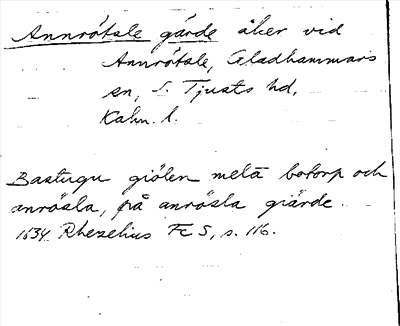 Annrötsle gärde åker vid
Annrötsle, Gladhammars
sn, S. Tjusts hd,
Kalm. l.
Bastugu giölen melä botorp och
anrösla, på anrösla giärde.
1634 Rhezelius Fc 5, s. 116.